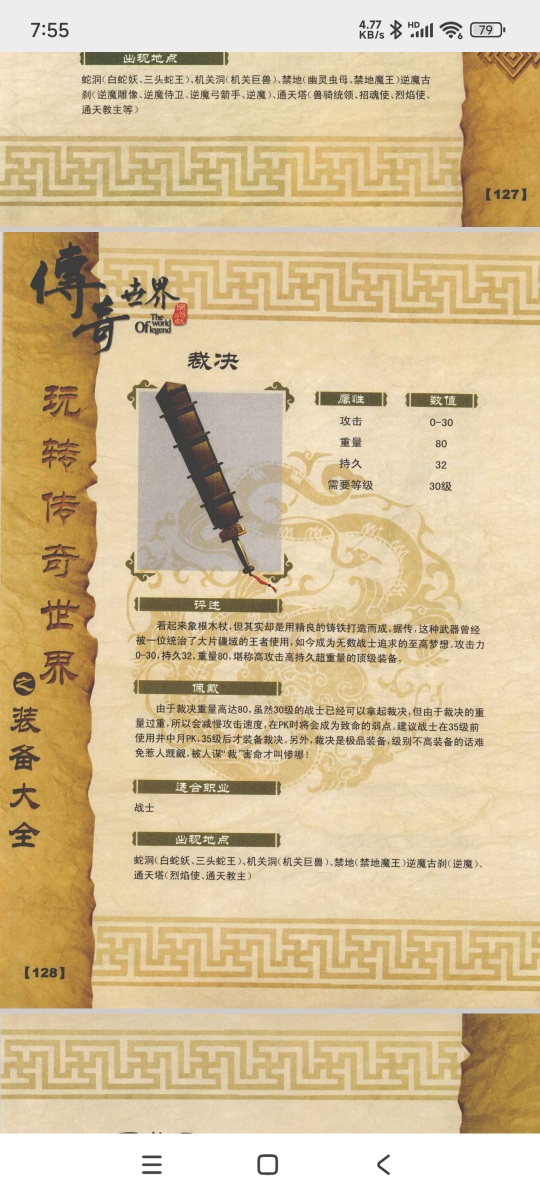 7:55
4.77
KB/s
HD
6
79
出现地点
蛇洞(白蛇妖、三头蛇王)、机关洞(机关巨兽)、禁地(幽灵虫母、禁地魔王)逆魔古
刹(逆魔雕像、逆魔侍卫、逆魔弓箭手、逆魔)、通天塔(兽骑统领、招魂使、烈焰使、
通天教主等)
【127】
傳奇世界
The world
Of legend
玩转传奇世界之装备大全
裁决
属性 数值
攻击 0-30
重量 80
持久 32
需要等级 30级
评述
看起来象根木杖,但其实却是用精良的铸铁打造而成,据传,这种武器曾经
被一位统治了大片疆域的王者使用,如今成为无数战士追求的至高梦想。攻击力
0-30,持久32,重量80,堪称高攻击高持久超重量的顶级装备。
佩戴
由于裁决重量高达80,虽然30级的战士已经可以拿起裁决,但由于裁决的重
量过重,所以会减慢攻击速度,在PK时将会成为致命的弱点。建议战士在35级前
使用井中月PK,35级后才装备裁决。另外,裁决是极品装备,级别不高装备的话难
免惹人觊觎,被人谋“裁”害命才叫惨哪!
适合职业
战士
出现地点
蛇洞(白蛇妖、三头蛇王)、机关洞(机关巨兽)、禁地(禁地魔王)逆魔古刹(逆魔)、
通天塔(烈焰使、通天教主)
【128】